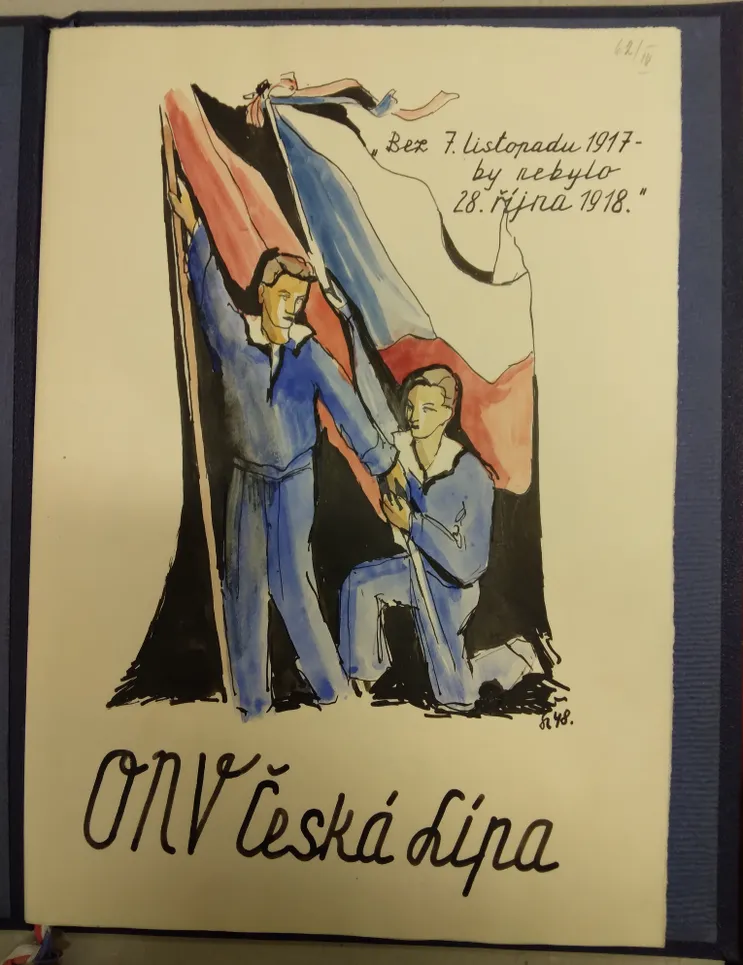 62/IV
„Bez 7. listopadu 1917-
by nebylo
28. října 1918."
48.
ONV Česká Lípa